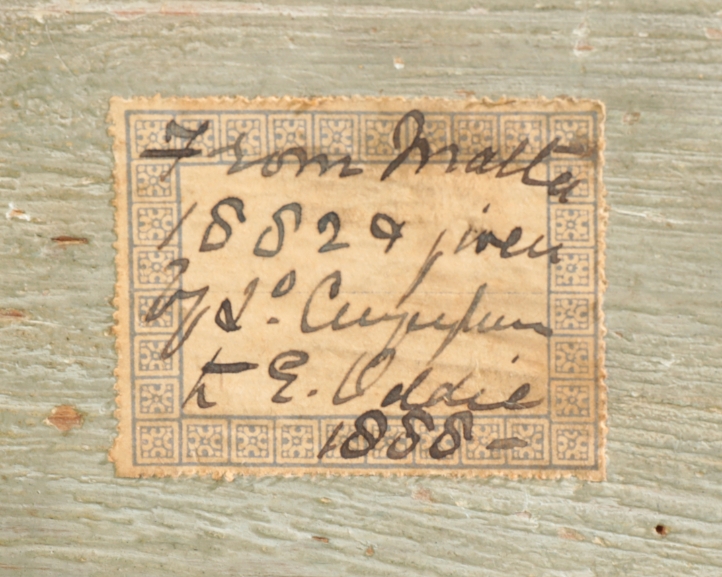 From Malta
1882 & given
by
to E. Oddie
1888 -